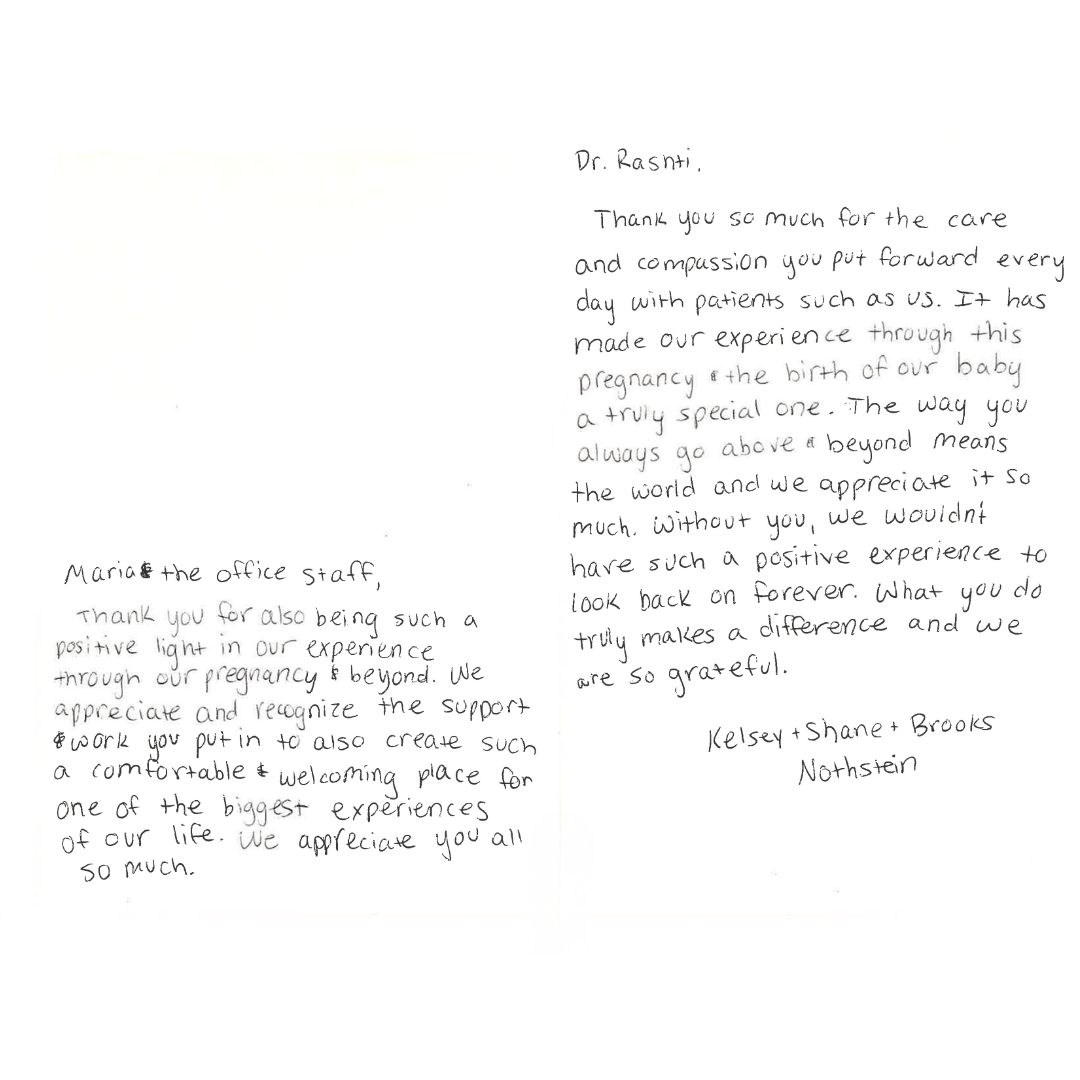 Maria & the office staff,
Thank you for also being such a
positive light in our experience
through our pregnancy & beyond. We
appreciate and recognize the support
& work you put in to also create such
a comfortable & welcoming place for
one of the biggest experiences
of our life. We appreciate you all
so much.
Dr. Rashti,
Thank you so much for the care
and compassion you put forward every
day with patients such as us. It has
made our experience through this
pregnancy & the birth of our baby
a truly special one. The way you
always go above & beyond means
the world and we appreciate it so
much. Without you, we wouldn't
have such a positive experience to
look back on forever. What you do
truly makes a difference and we
are so grateful.
Kelsey + Shane + Brooks
Nothstein